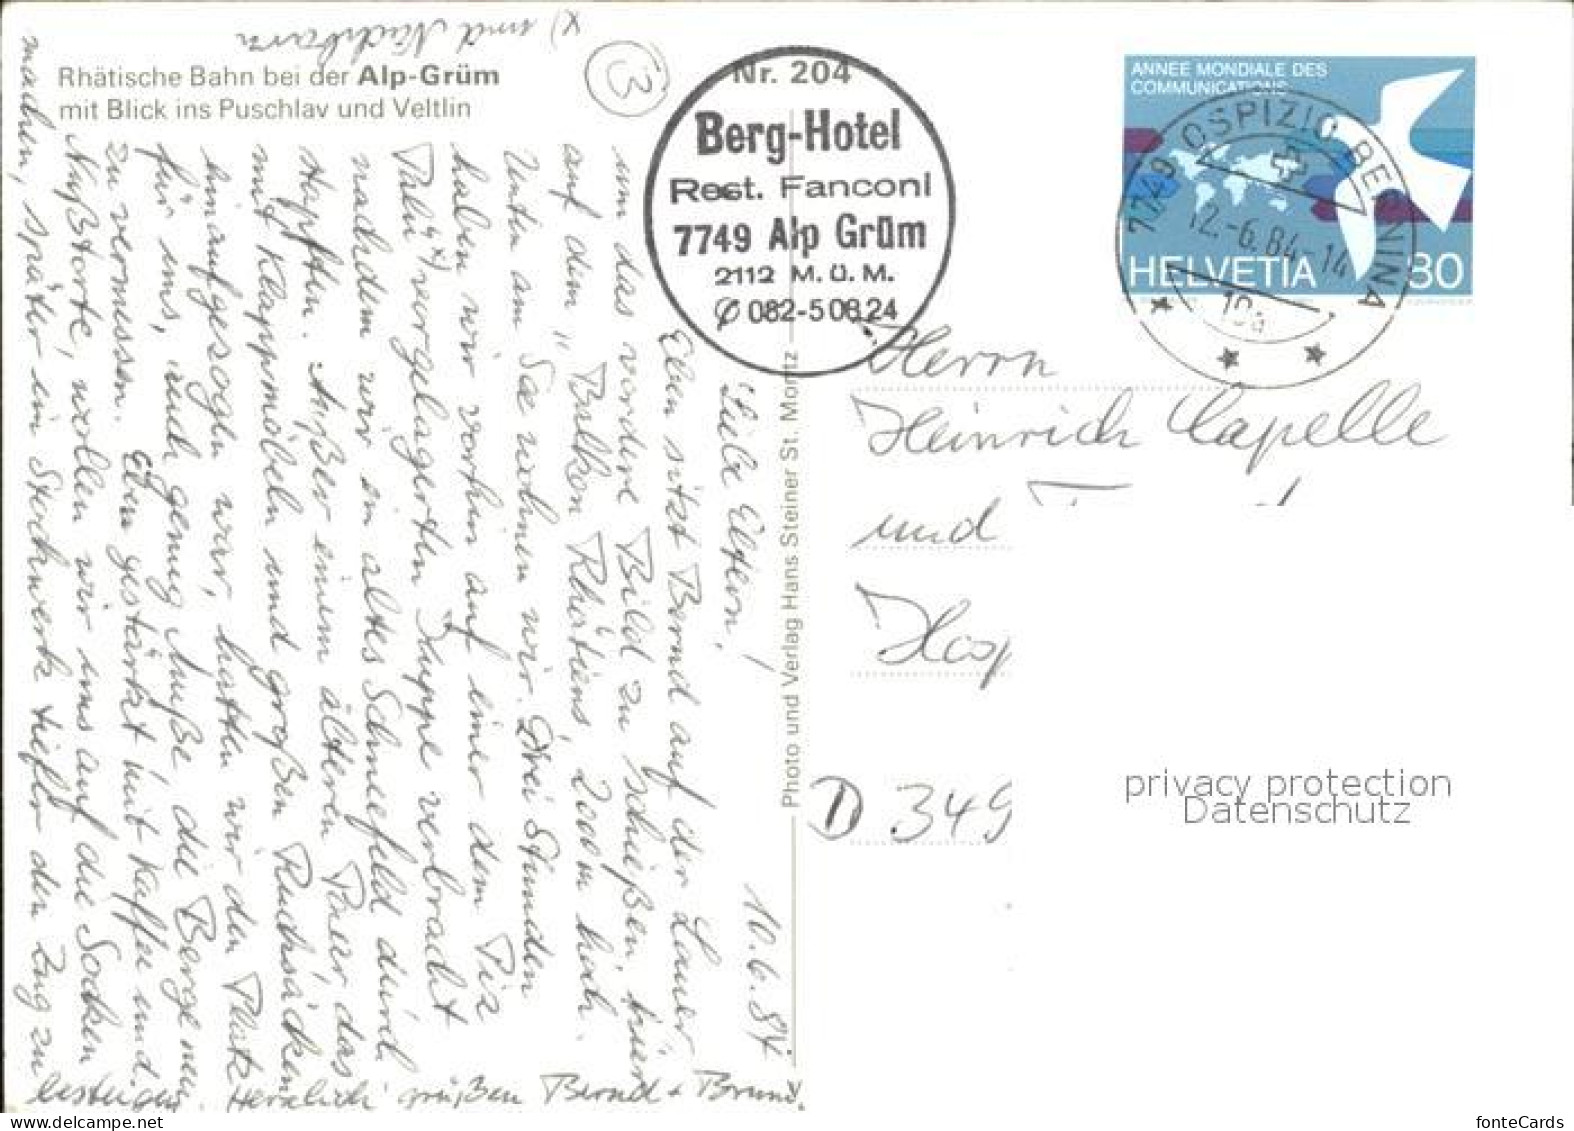 x) und Nachbarn
Rhätische Bahn bei der Alp-Grüm
mit Blick ins Puschlav und Veltlin
3
Nr. 204
Berg-Hotel
Rest. Fanconi
7749 Alp Grüm
2112 M.Ü.M.
082-50824
ANNEE MONDIALE DES
COMMUNICATIONS
HELVETIA 80
7749 OSPIZIO BERNINA
12.-6.84-14
10.6.84.
Liebe Eltern!
Eben sitzt Bernd auf der Lauer
um das vordere Bild zu schießen, hier
auf dem "Balkon Rhätiens", 2000m hoch.
Unten am See wohnen wir. Drei Stunden
haben wir vorhin auf einer dem Piz
Palü x) vorgelagerten Kuppe verbracht
nachdem wir ein altes Schneefeld durch
stapften. Außer einem älteren Paar das
mit Klappmöbeln und großen Rucksäcken
hinaufgezogen war, hatten wir den Platz
für uns, und genug Muße die Berge neu
zu vermessen. Eben gestärkt mit Kaffee und
Nußtorte, wollen wir uns auf die Socken
machen, später ein Stockwerk tiefer den Zug zu
besteigen. Herzlich grüßen Bernd +
Photo und Verlag Hans Steiner St. Moritz
Herrn
Heinrich Capelle
und
Hosp
D 349
privacy protection
Datenschutz
fonteCards